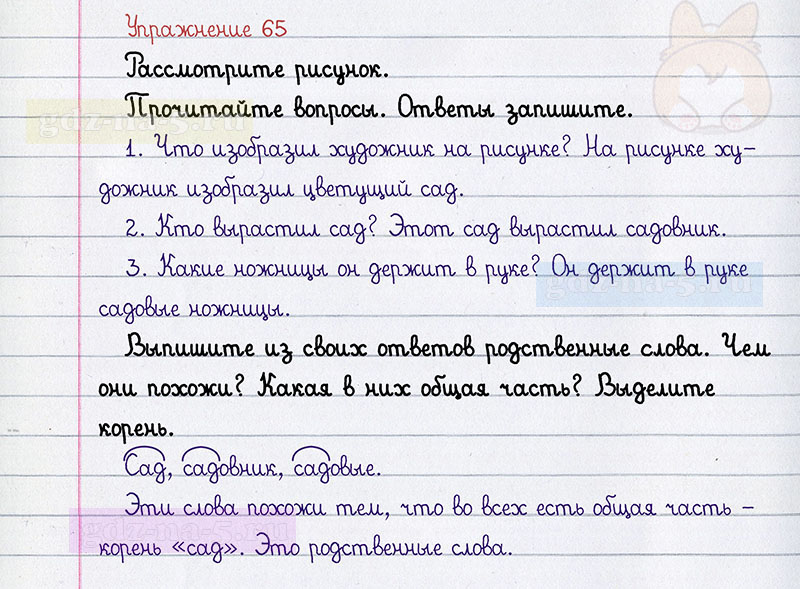 Упражнение 65
Рассмотрите рисунок.
Прочитайте вопросы. Ответы запишите.
gdz-na-5.ru
1. Что изобразил художник на рисунке? На рисунке ху-
дожник изобразил цветущий сад.
2. Кто вырастил сад? Этот сад вырастил садовник.
3. Какие ножницы он держит в руке? Он держит в руке
gdz-na-5.ru
садовые ножницы.
Выпишите из своих ответов родственные слова. Чем
они похожи? Какая в них общая часть? Выделите
корень.
Сад, садовник, садовые.
Эти слова похожи тем, что во всех есть общая часть –
gdz-na-5.ru
корень «сад». Это родственные слова.